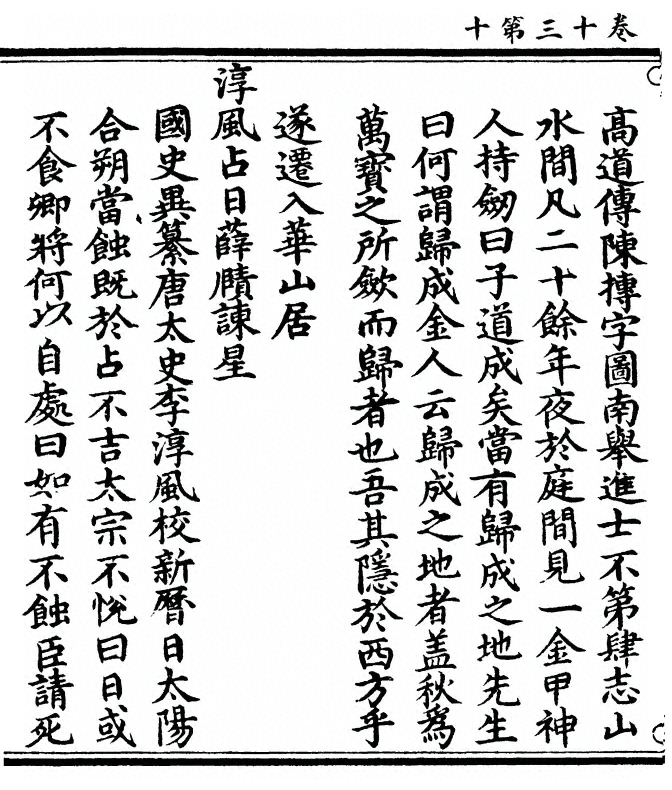 卷十三第十
高道傳陳摶字圖南舉進士不第肆志山
水間凡二十餘年夜於庭間見一金甲神
人持劒曰子道成矣當有歸成之地先生
曰何謂歸成金人云歸成之地者盖秋爲
萬寶之所斂而歸者也吾其隱於西方乎
遂遷入華山居
淳風占日薛賾諫星
國史異纂唐太史李淳風校新曆日太陽
合朔當蝕既於占不吉太宗不悅曰日或
不食卿將何以自處曰如有不蝕臣請死